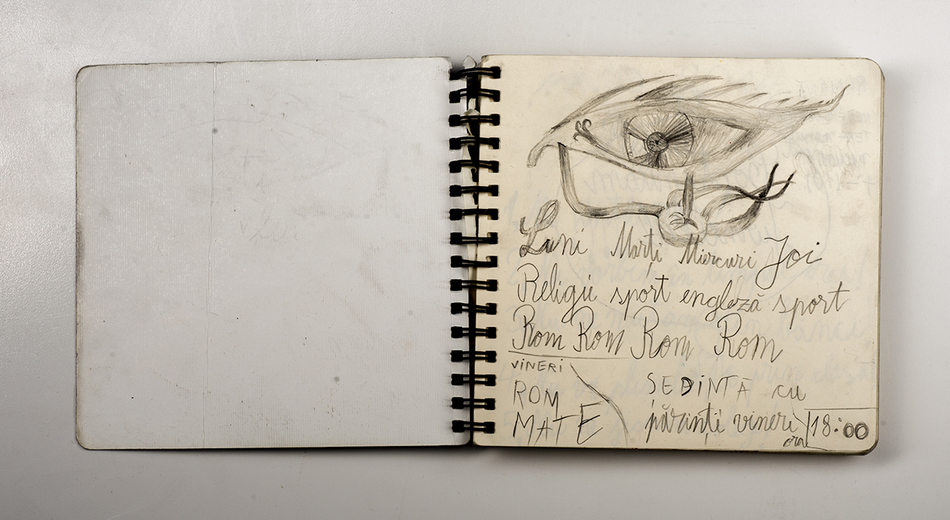 Luni Marți Miercuri Joi
Religii sport engleză sport
Rom Rom Rom Rom
VINERI
ROM
MATE
SEDINTA cu
părinți vineri
ora 18:00